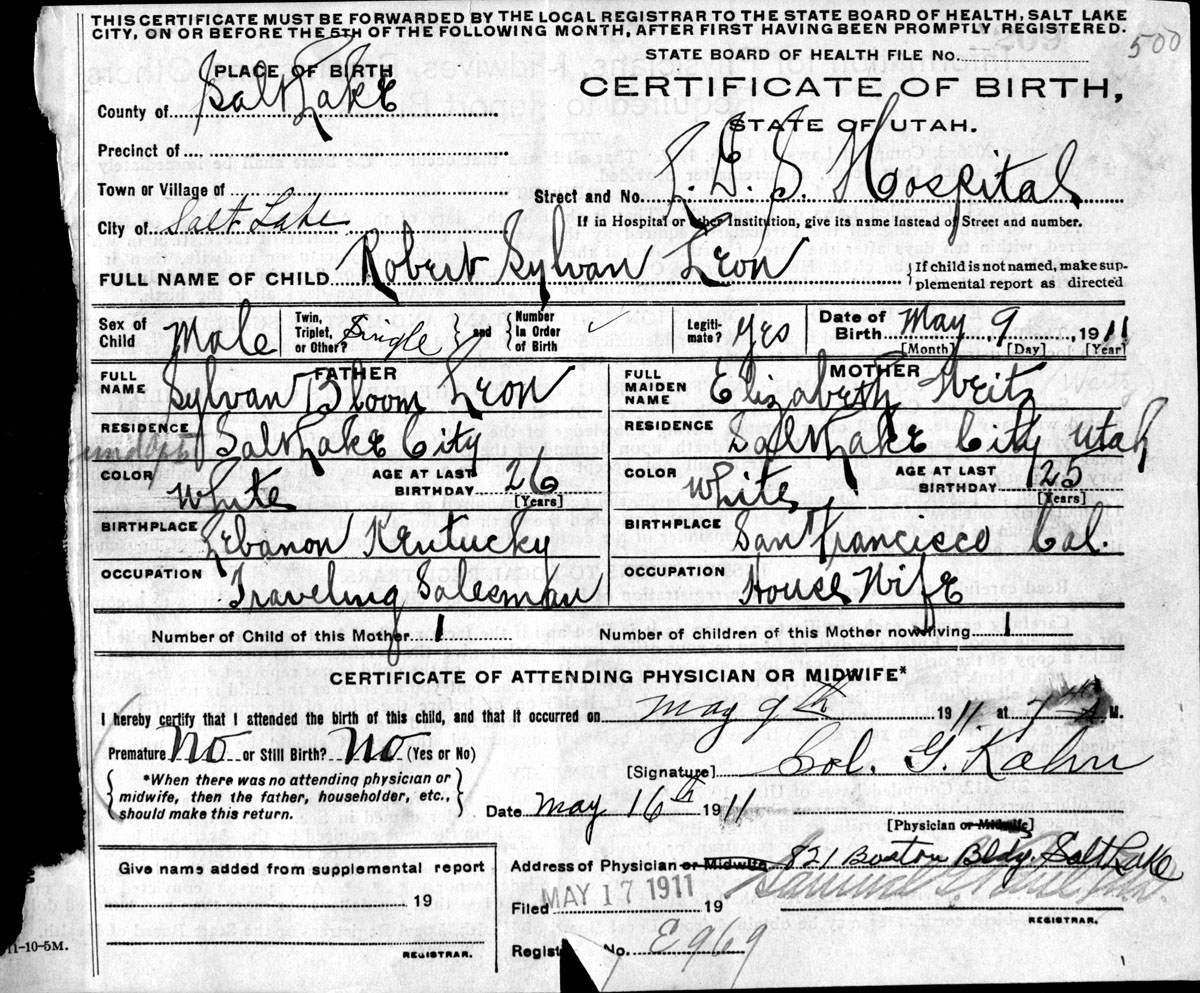 THIS CERTIFICATE MUST BE FORWARDED BY THE LOCAL REGISTRAR TO THE STATE BOARD OF HEALTH, SALT LAKE
CITY, ON OR BEFORE THE 5TH OF THE FOLLOWING MONTH, AFTER FIRST HAVING BEEN PROMPTLY REGISTERED.
500
STATE BOARD OF HEALTH FILE No.
PLACE OF BIRTH
CERTIFICATE OF BIRTH,
County of Salt Lake
STATE OF UTAH.
Precinct of
Town or Village of
Street and No. L. D. S. Hospital
City of Salt Lake
If in Hospital or other Institution, give its name instead of Street and number.
FULL NAME OF CHILD Robert Sylvan Leon
If child is not named, make sup-
plemental report as directed
Sex of Child Male
Twin, Triplet, or Other? Single
and Number In Order of Birth ✓
Legiti-mate? Yes
Date of Birth May 9, 1911
[Month] [Day] [Year]
FATHER
FULL NAME Sylvan Bloom Leon
RESIDENCE Salt Lake City
COLOR White
AGE AT LAST BIRTHDAY 26
[Years]
BIRTHPLACE Lebanon Kentucky
OCCUPATION Traveling Salesman
MOTHER
FULL MAIDEN NAME Elizabeth Weitz
RESIDENCE Salt Lake City Utah
COLOR White
AGE AT LAST BIRTHDAY 25
[Years]
BIRTHPLACE San Francisco Cal.
OCCUPATION House Wife
Number of Child of this Mother 1
Number of children of this Mother now living 1
CERTIFICATE OF ATTENDING PHYSICIAN OR MIDWIFE*
I hereby certify that I attended the birth of this child, and that it occurred on May 9th 1911 at 7 M.
Premature No or Still Birth? No (Yes or No)
*When there was no attending physician or
midwife, then the father, householder, etc.,
should make this return.
[Signature] Sol. G. Kahn
Date May 16th 1911
[Physician or Midwife]
Give name added from supplemental report
19
REGISTRAR.
Address of Physician or Midwife 821 Boston Bldg. Salt Lake
Filed MAY 17 1911 19
REGISTRAR.
Regist No. E969
11-10-5M.